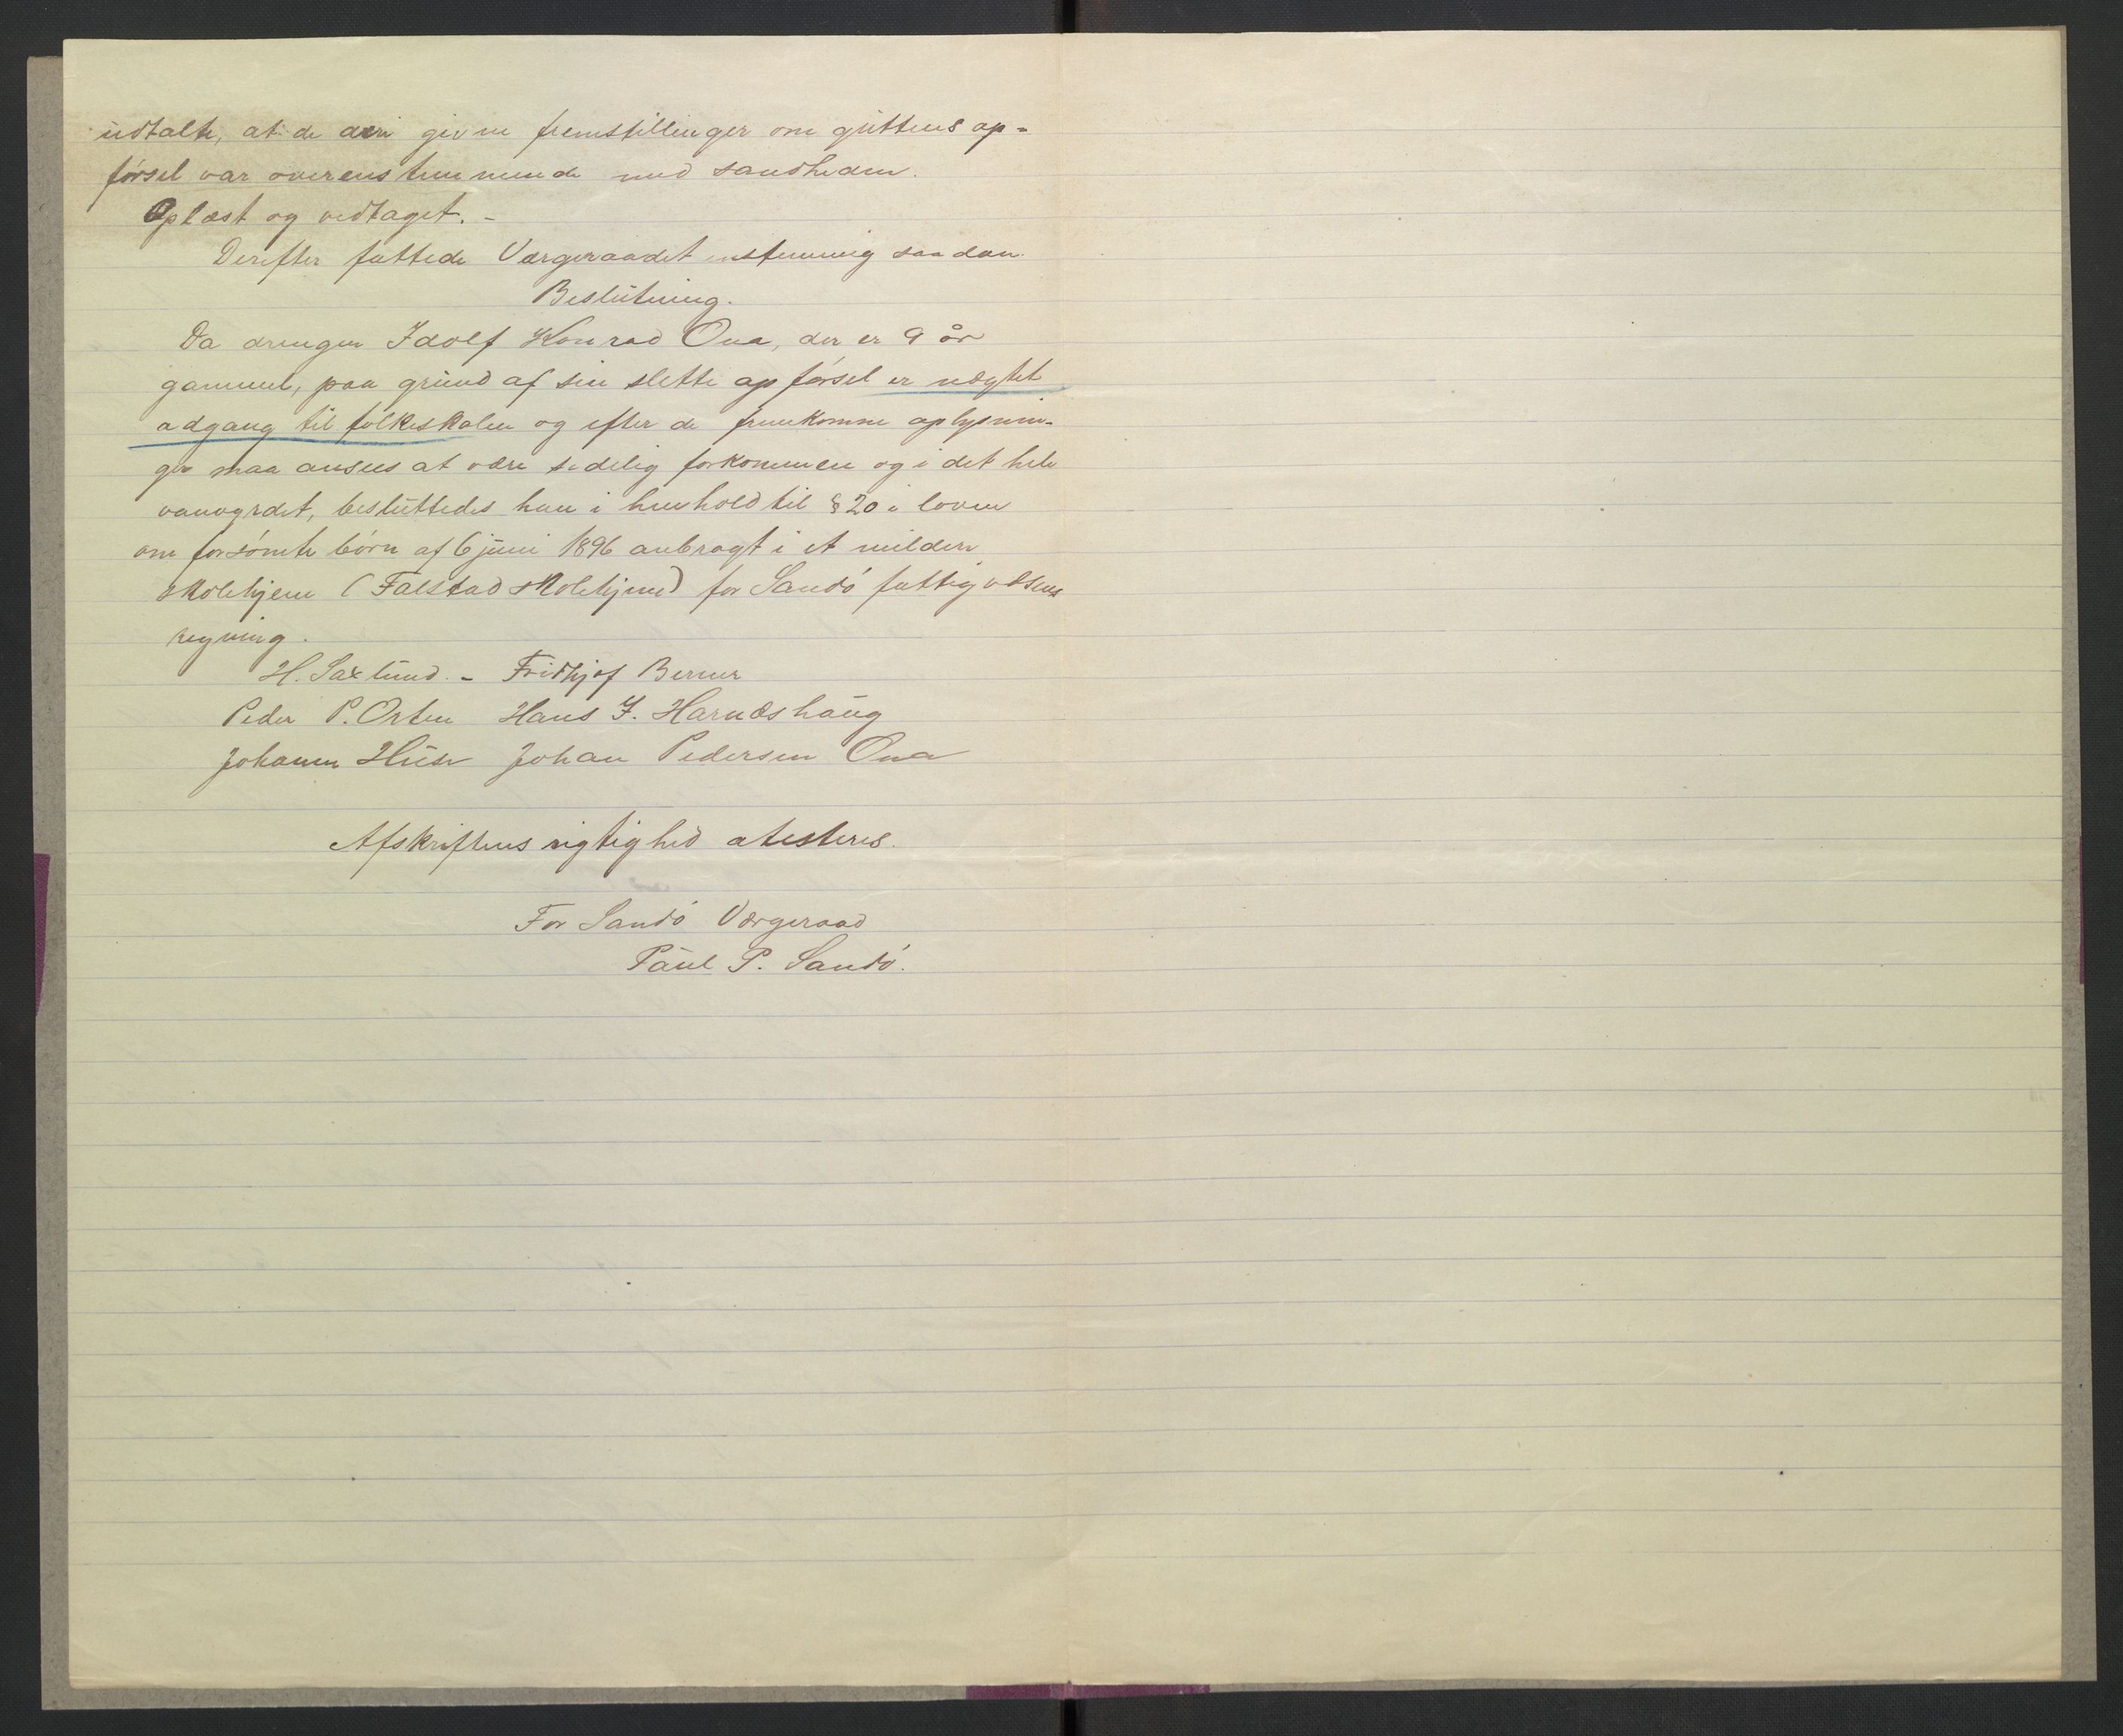 udtalte, at de deri givne fremstillinger om guttens op-
førsel var overensstemmende med sandheden.
Oplæst og vedtaget. -
Derefter fattede Værgeraadet enstemmig saadan
Beslutning.
Da drengen Idolf Konrad Ona, der er 9 år
gammel, paa grund af sin slette opførsel er nægtet
adgang til folkeskolen og efter de fremkomne oplysnin-
ger maa ansees at være sedelig forkommen og i det hele
vanvyrdet, besluttedes han i henhold til § 20 i loven
om forsømte børn af 6 juni 1896 anbragt i et mildere
skolehjem (Falstad skolehjem) for Sandø fattigvæsens
regning.
H. Saxlund. - Fridthjof Berner
Peder P. Orten Hans J. Harnæshaug
Johannes Huse Johan Pedersen Ona
Afskriftens rigtighed atesteres.
For Sandø Værgeraad
Paul P. Sandø.